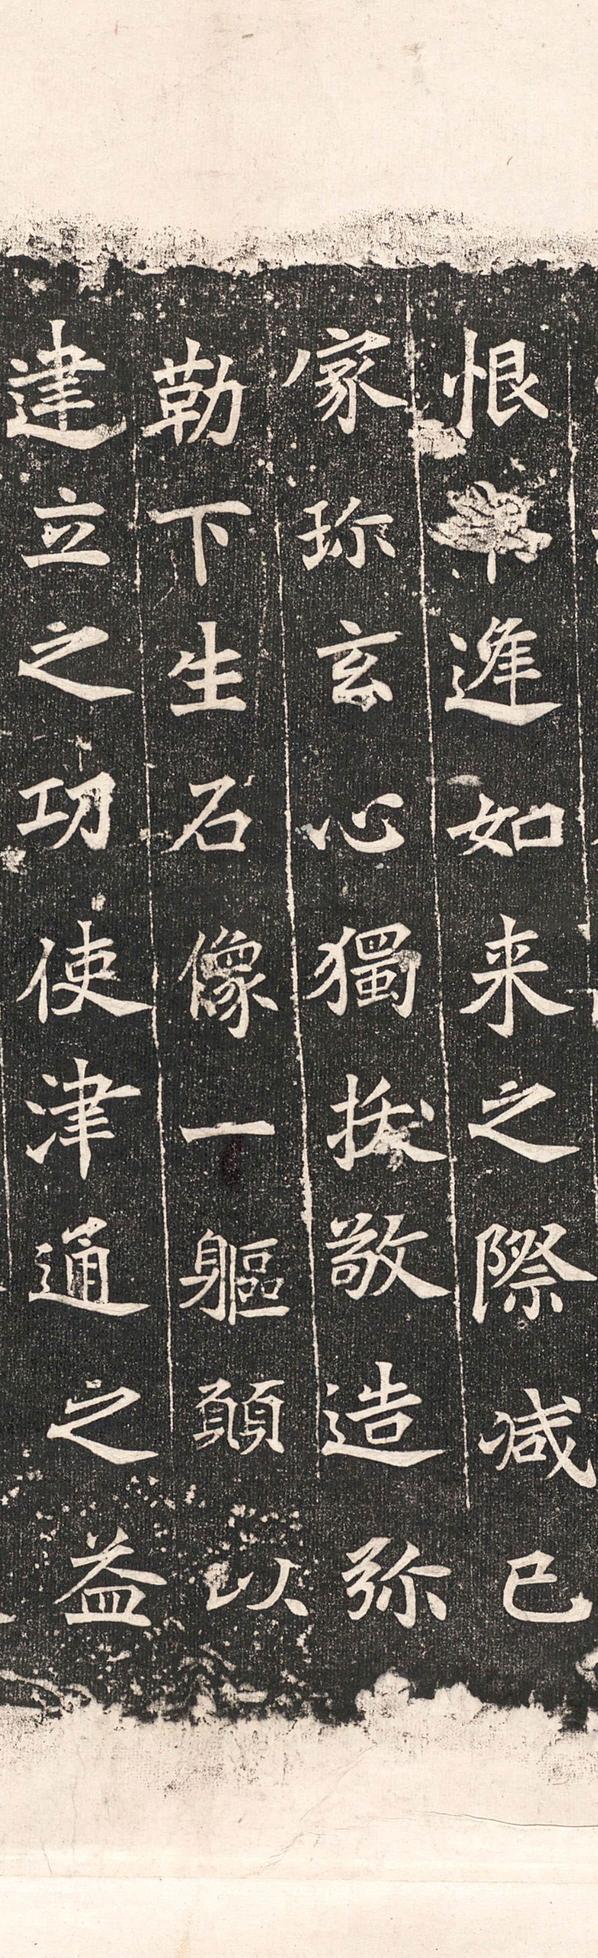 恨逢如来之際减己
家珎玄心獨拔敬造弥
勒下生石像一軀願以
建立之功使津通之益